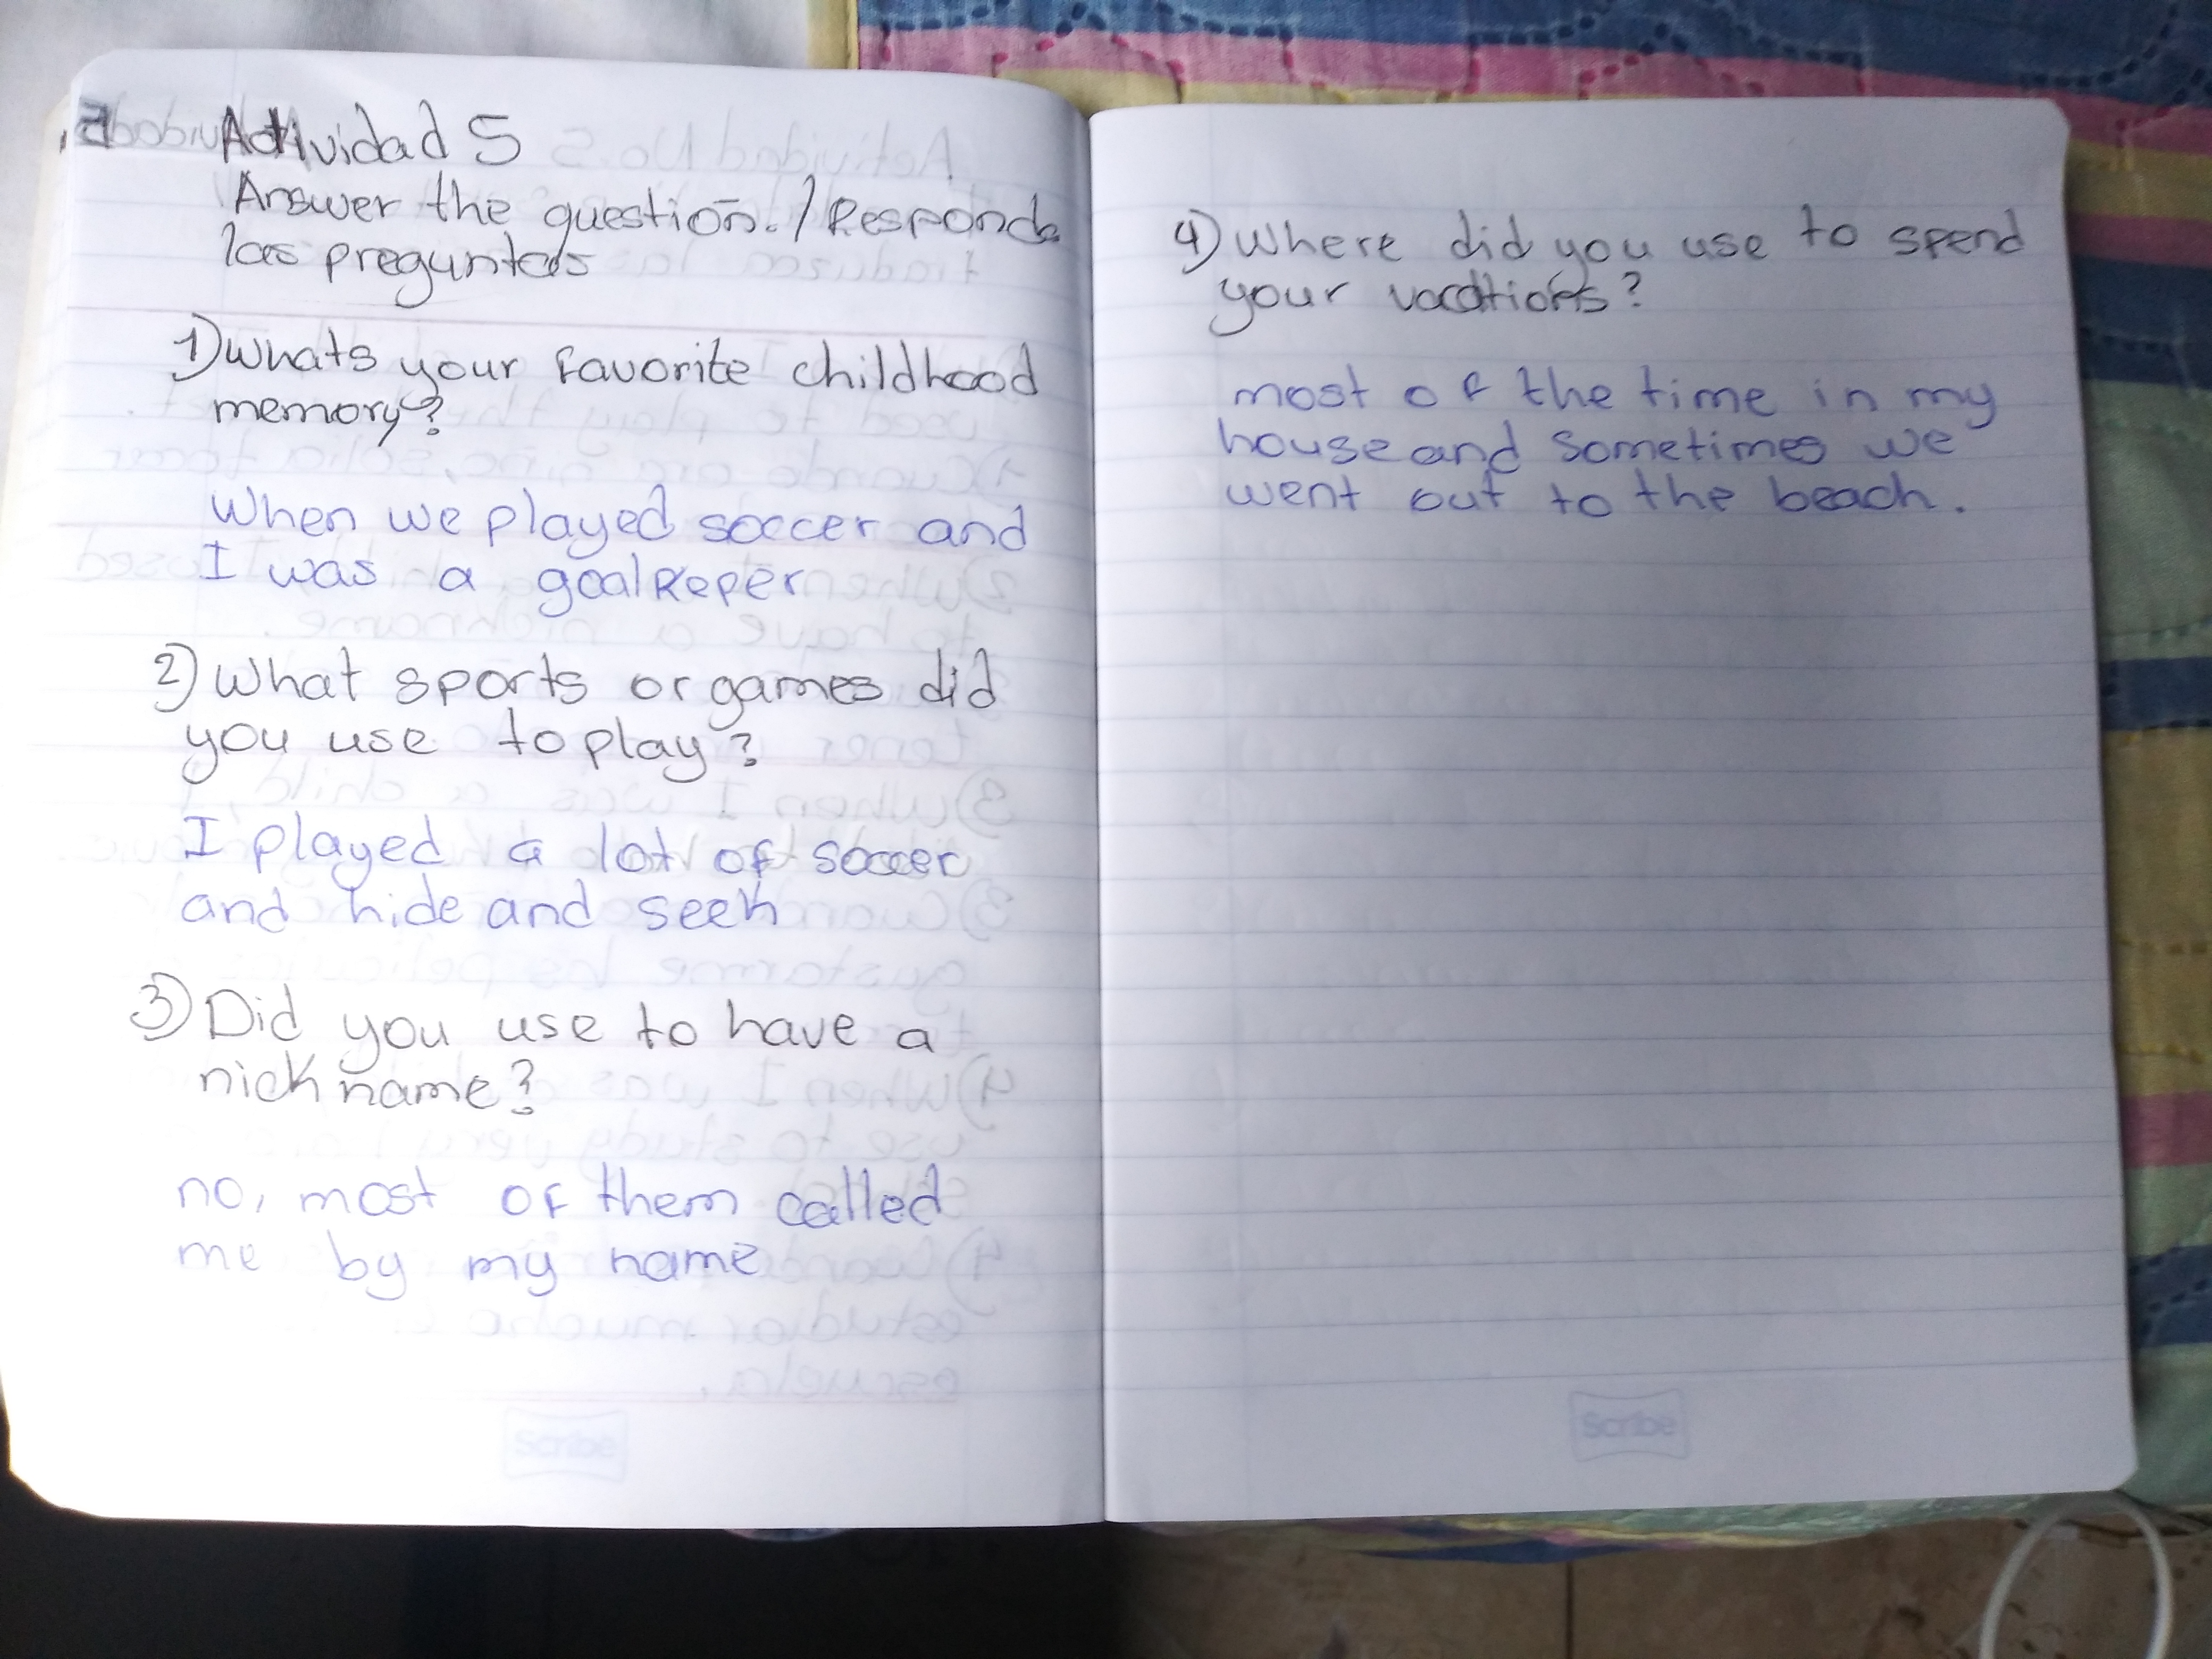 Actividad 5
Answer the question. / Responda
las preguntas
1) Whats your favorite childhood
memory?
When we played soccer and
I was a goalkeper
2) What sports or games did
you use to play?
I played a lot of soccer
and hide and seek
3) Did you use to have a
nick name?
no, most of them called
me by my name
Scribe
4) Where did you use to spend
your vacations?
most of the time in my
house and sometimes we
went out to the beach.
Scribe